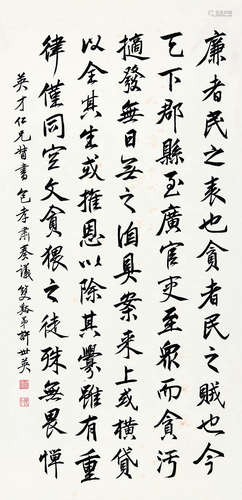 廉者民之表也貪者民之賊也今
天下郡縣至廣官吏至眾而貪污
擿發無日無之洎具案來上或橫貸
以全其生或推恩以除其釁雖有重
律僅同空文貪猥之徒殊無畏憚
英才仁兄 書包孝肅奏議 雙谿弟許世英